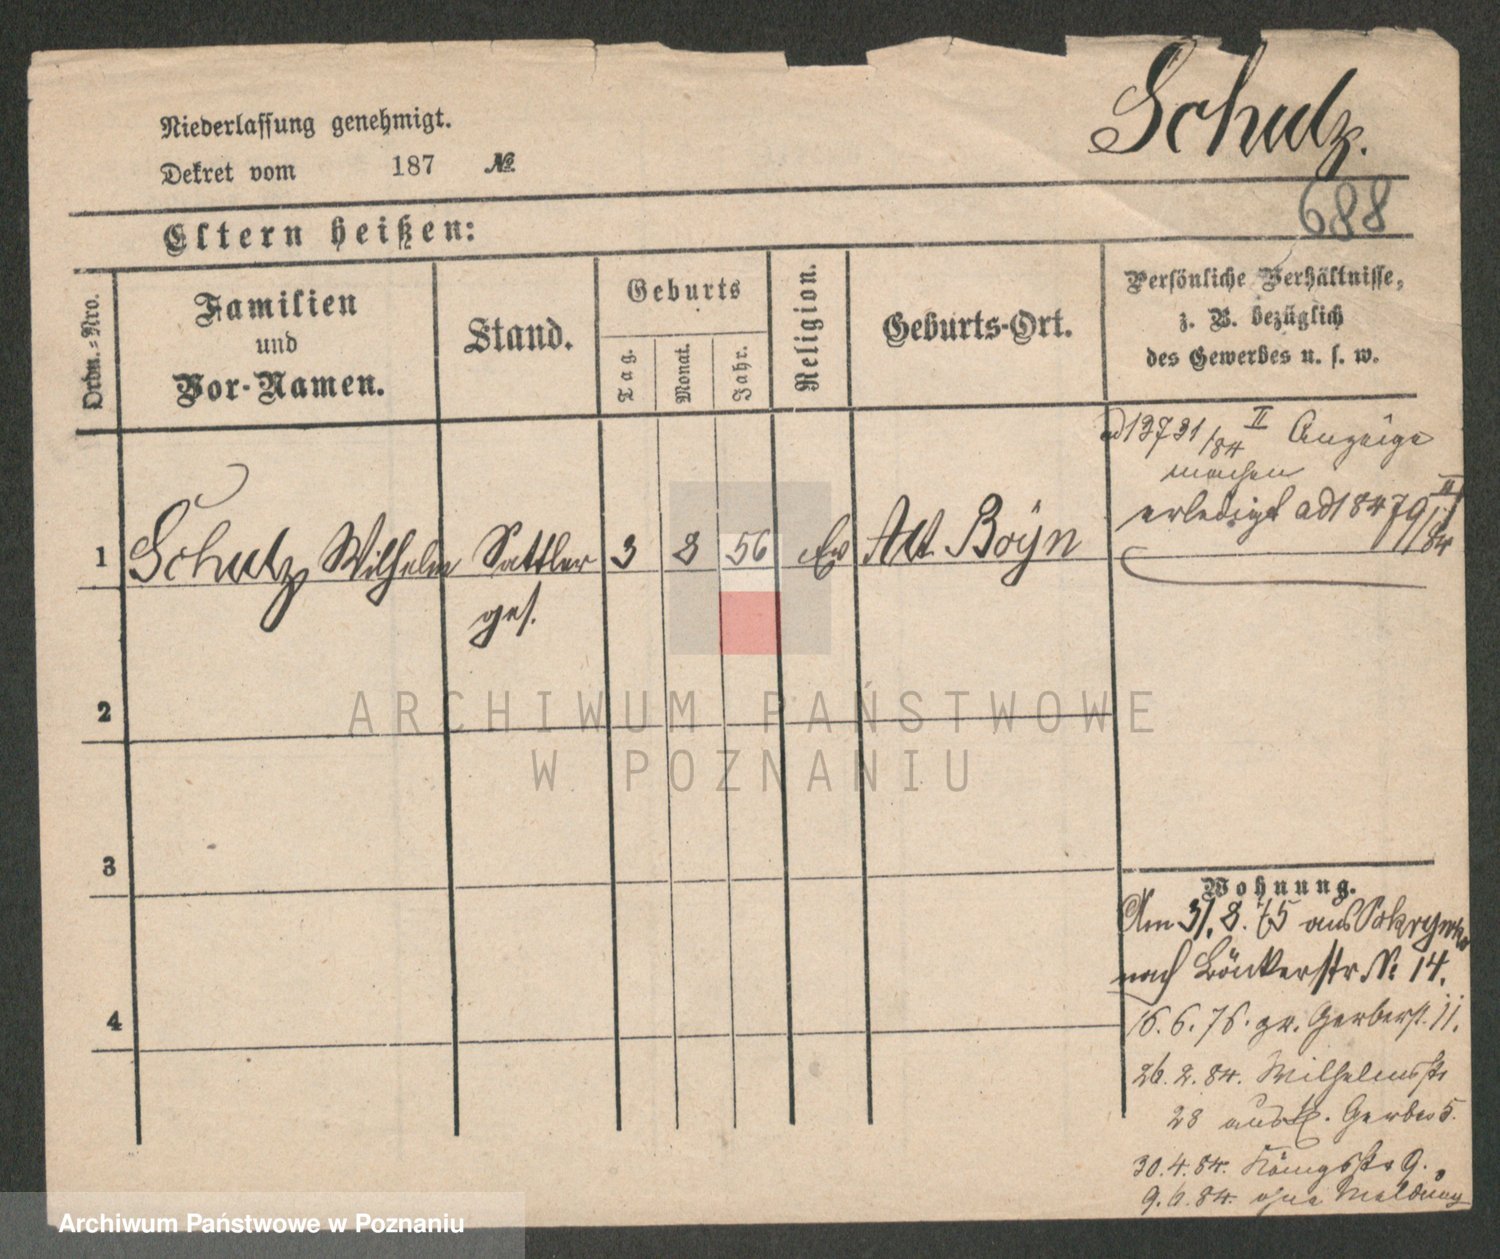 Schulz.
Niederlassung genehmigt.
Dekret vom 187 №
688
Eltern heißen:
Ordn.-Nro.
Familien
und
Vor-Namen.
Stand.
Geburts
Tag.
Monat.
Jahr.
Religion.
Geburts-Ort.
Persönliche Verhältnisse,
z. B. bezüglich
des Gewerbes u. s. w.
ad 13731/84 II Anzeige
machen
erledigt ad 18479/84 II
1 Schulz Wilhelm Sattler 3 8 56 Ev Alt Boÿn
ges.
2
3
4
Wohnung.
Am 31.8.75 aus
nach Bäckerstr № 14.
16.6.76. gr. Gerberst. 11.
26.2.84. Wilhelmsstr
28 aus kl. Gerber 5.
30.4.84. Königsstr 9.
9.6.84. ohne Meldung
ARCHIWUM PAŃSTWOWE
W POZNANIU
Archiwum Państwowe w Poznaniu